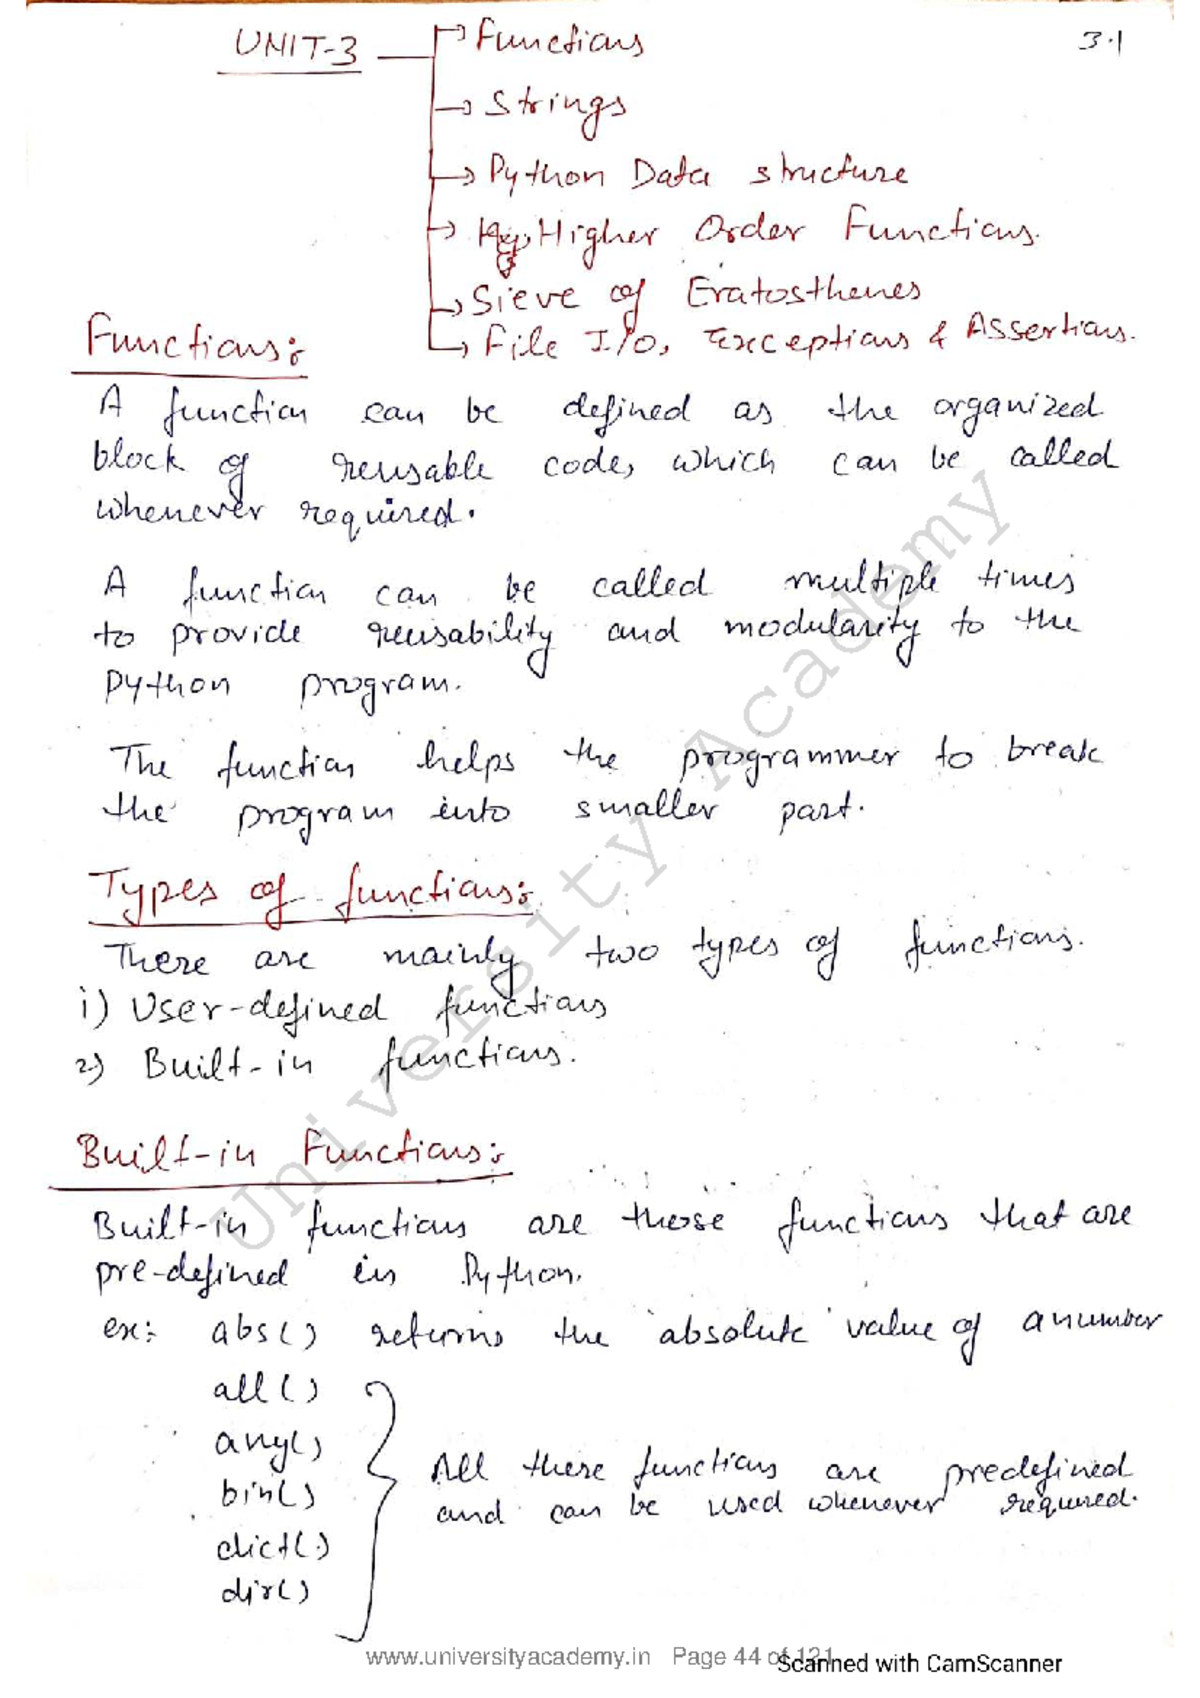 UNIT-3
3.1
→ Functions
→ Strings
→ Python Data structure
→ Higher Order Functions.
→ Sieve of Eratosthenes
→ File I/O, Exceptions & Assertions.
Functions:
A function can be defined as the organized
block of reusable code, which can be called
whenever required.
A function can be called multiple times
to provide reusability and modularity to the
Python program.
The function helps the programmer to break
the program into smaller part.
Types of functions:
There are mainly two types of functions.
i) User-defined functions
2) Built-in functions.
Built-in Functions:
Built-in functions are those functions that are
pre-defined in Python.
ex: abs() returns the absolute value of a number
all()
any()
bin()
dict()
dir()
All these functions are predefined
and can be used whenever required.
University Academy
www.universityacademy.in Page 44 of 121
Scanned with CamScanner